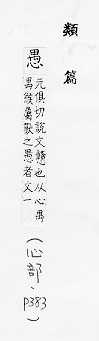 類篇
愚
元俱切說文戇也从心禺
禺猴屬獸之愚者文一
(心部、p383)